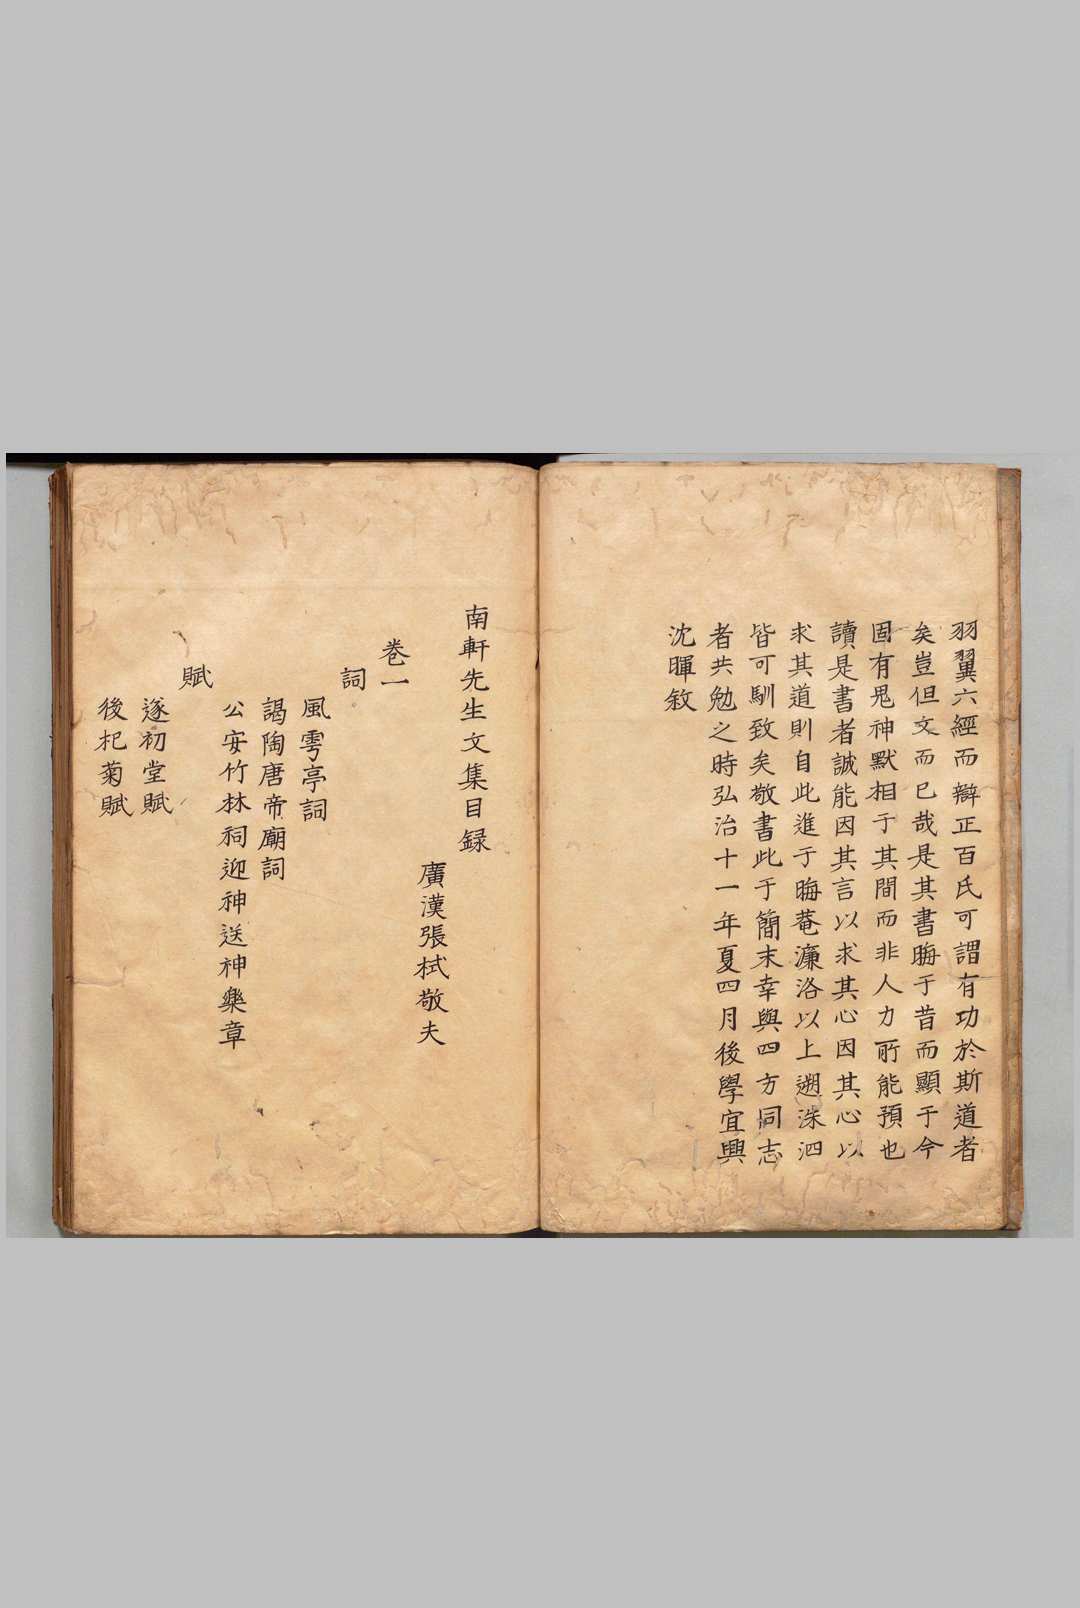 羽翼六經而辯正百氏可謂有功於斯道者
矣豈但文而已哉是其書晦于昔而顯于今
固有鬼神默相于其間而非人力所能預也
讀是書者誠能因其言以求其心因其心以
求其道則自此進于晦菴濂洛以上遡洙泗
皆可馴致矣敬書此于簡末幸與四方同志
者共勉之時弘治十一年夏四月後學宜興
沈暉敘
南軒先生文集目録
廣漢張栻敬夫
卷一
詞
風雩亭詞
謁陶唐帝廟詞
公安竹林祠迎神送神樂章
賦
遂初堂賦
後杞菊賦